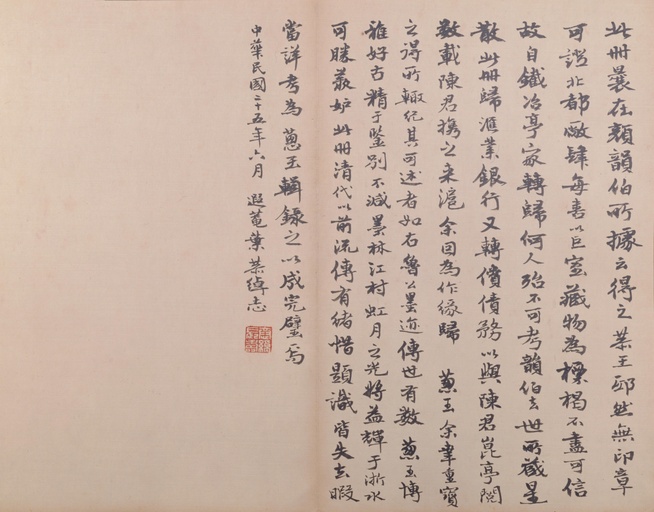 此冊曩在顏韻伯所據云得之某王邸然無印章
可證北都廠肆每喜以巨室藏物為標榜不盡可信
故自鐵冶亭家轉歸何人殆不可考韻伯去世所藏星
散此冊歸滙業銀行又轉償債務以與陳君崑亭閱
數載陳君攜之来滬余因為作緣歸 蔥玉余幸重寶
之得所輙紀其可述者如右魯公墨迹傳世有數 蔥玉博
雅好古精于鉴別不減墨林江村虹月之光將益輝于浙水
可勝羨妒此冊清代以前流傳有緒惜題識皆失去暇
當詳考為蔥玉輯録之以成完璧焉
中華民國二十五年六月 遐菴葉恭綽志